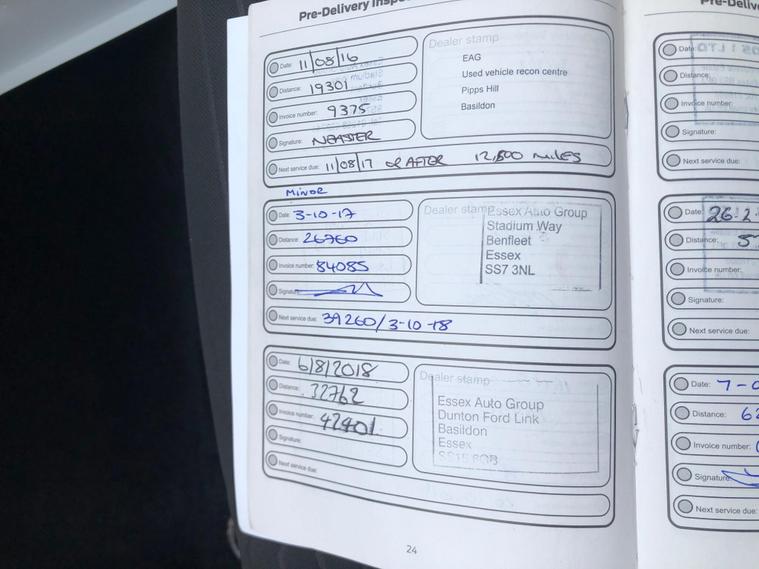 Pre-Delivery Inspe
Date: 11/08/16
Distance: 19301
Invoice number: 9375
Signature:
Dealer stamp
EAG
Used vehicle recon centre
Pipps Hill
Basildon
Next service due: 11/08/17 or AFTER 12,500 miles
MINOR
Date: 3-10-17
Distance: 26760
Invoice number: 84085
Signature:
Dealer stamp
Essex Auto Group
Stadium Way
Benfleet
Essex
SS7 3NL
Next service due: 39260/3-10-18
Date: 6/8/2018
Distance: 32762
Invoice number: 42401
Signature:
Next service due:
Dealer stamp
Essex Auto Group
Dunton Ford Link
Basildon
Essex
24
Pre-Deliv
Date:
Distance:
Invoice number:
Signature:
Next service due:
Date: 26-2
Distance: 5
Invoice number:
Signature:
Next service due:
Date: 7-0
Distance: 62
Invoice number:
Signature:
Next service due: